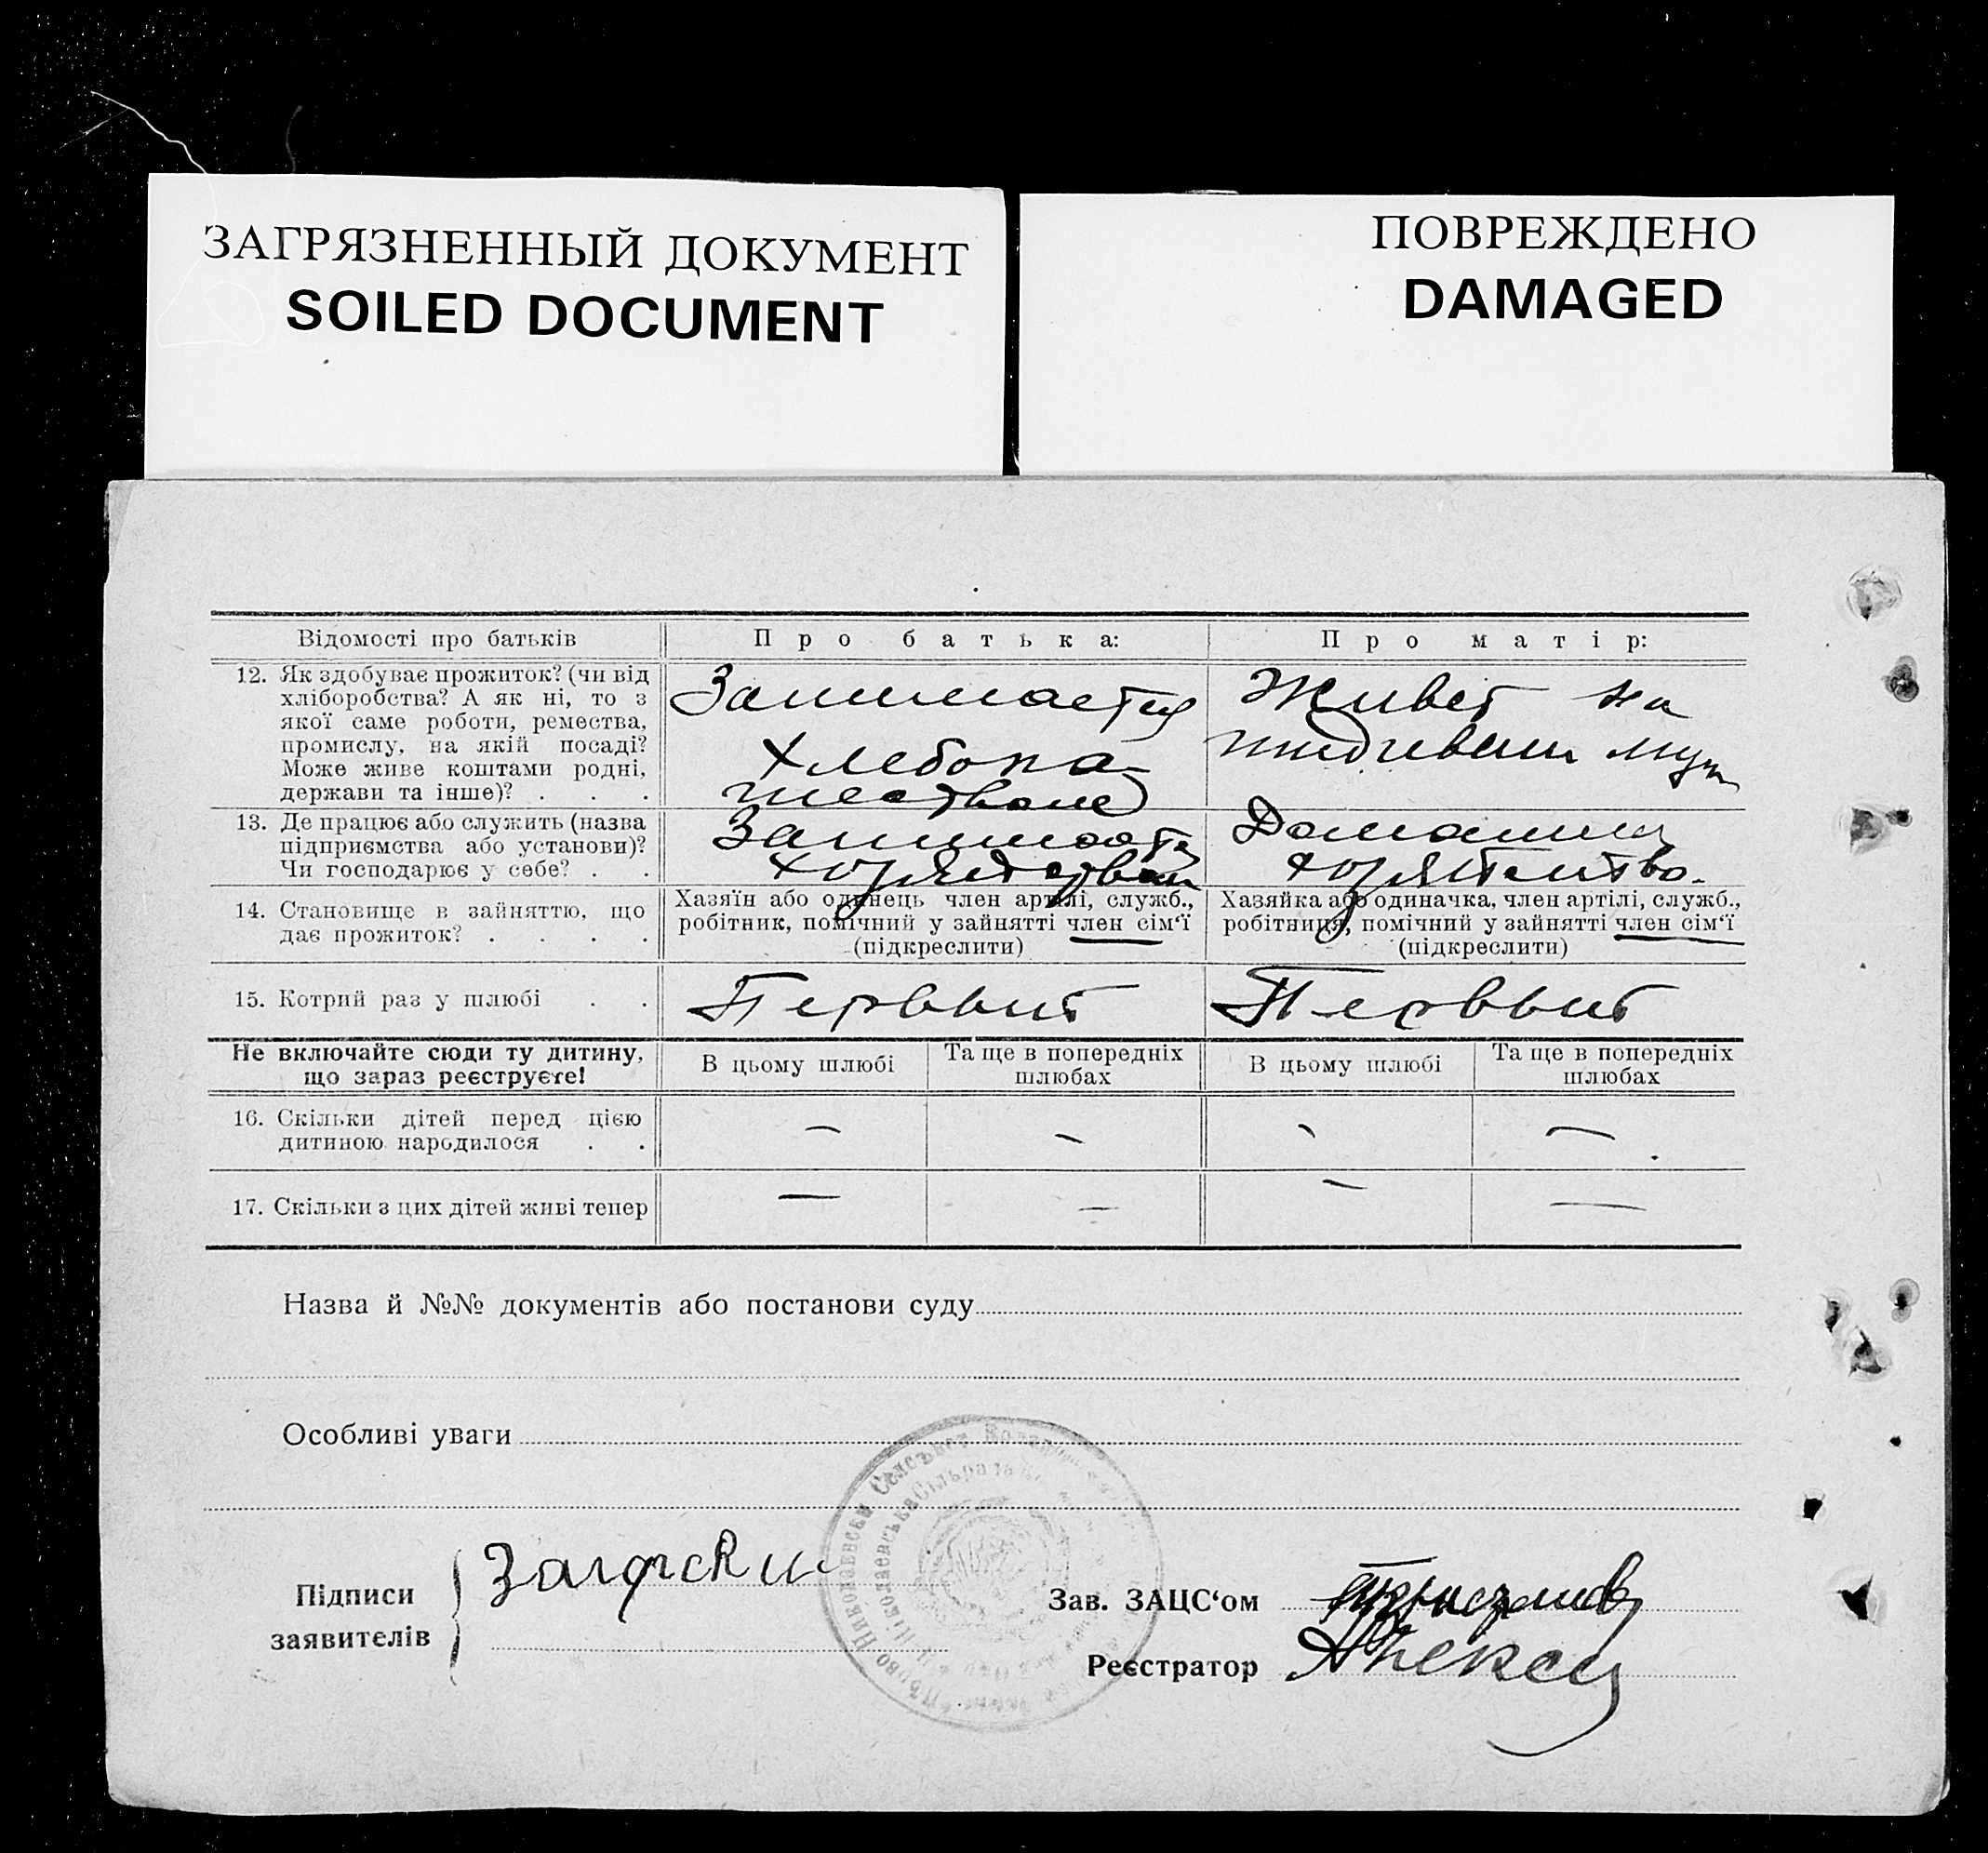 ЗАГРЯЗНЕННЫЙ ДОКУМЕНТ
SOILED DOCUMENT
ПОВРЕЖДЕНО
DAMAGED
Відомості про батьків
Про батька:
Про матір:
12. Як здобуває прожиток? (чи від
хліборобства? А як ні, то з
якої саме роботи, ремества,
промислу, на якій посаді?
Може живе коштами родні,
держави та інше)? . . .
Занимается
хлебопа-
Живет на
13. Де працює або служить (назва
підприємства або установи)?
Чи господарює у себе? . .
14. Становище в зайняттю, що
дає прожиток? . . . .
Хазяїн або одинець член артілі, служб.,
робітник, помічний у зайнятті член сім‘ї
(підкреслити)
Хазяйка або одиначка, член артілі, служб.,
робітниця, помічний у зайнятті член сім‘ї
(підкреслити)
15. Котрий раз у шлюбі . .
Первый
Первый
Не включайте сюди ту дитину,
що зараз реєструєте!
В цьому шлюбі
Та ще в попередніх
шлюбах
В цьому шлюбі
Та ще в попередніх
шлюбах
16. Скільки дітей перед цією
дитиною народилося . .
— — — —
17. Скільки з цих дітей живі тепер
— — — —
Назва й №№ документів або постанови суду
Особливі уваги
Підписи
заявителів
Зав. ЗАЦС‘ом
Реєстратор